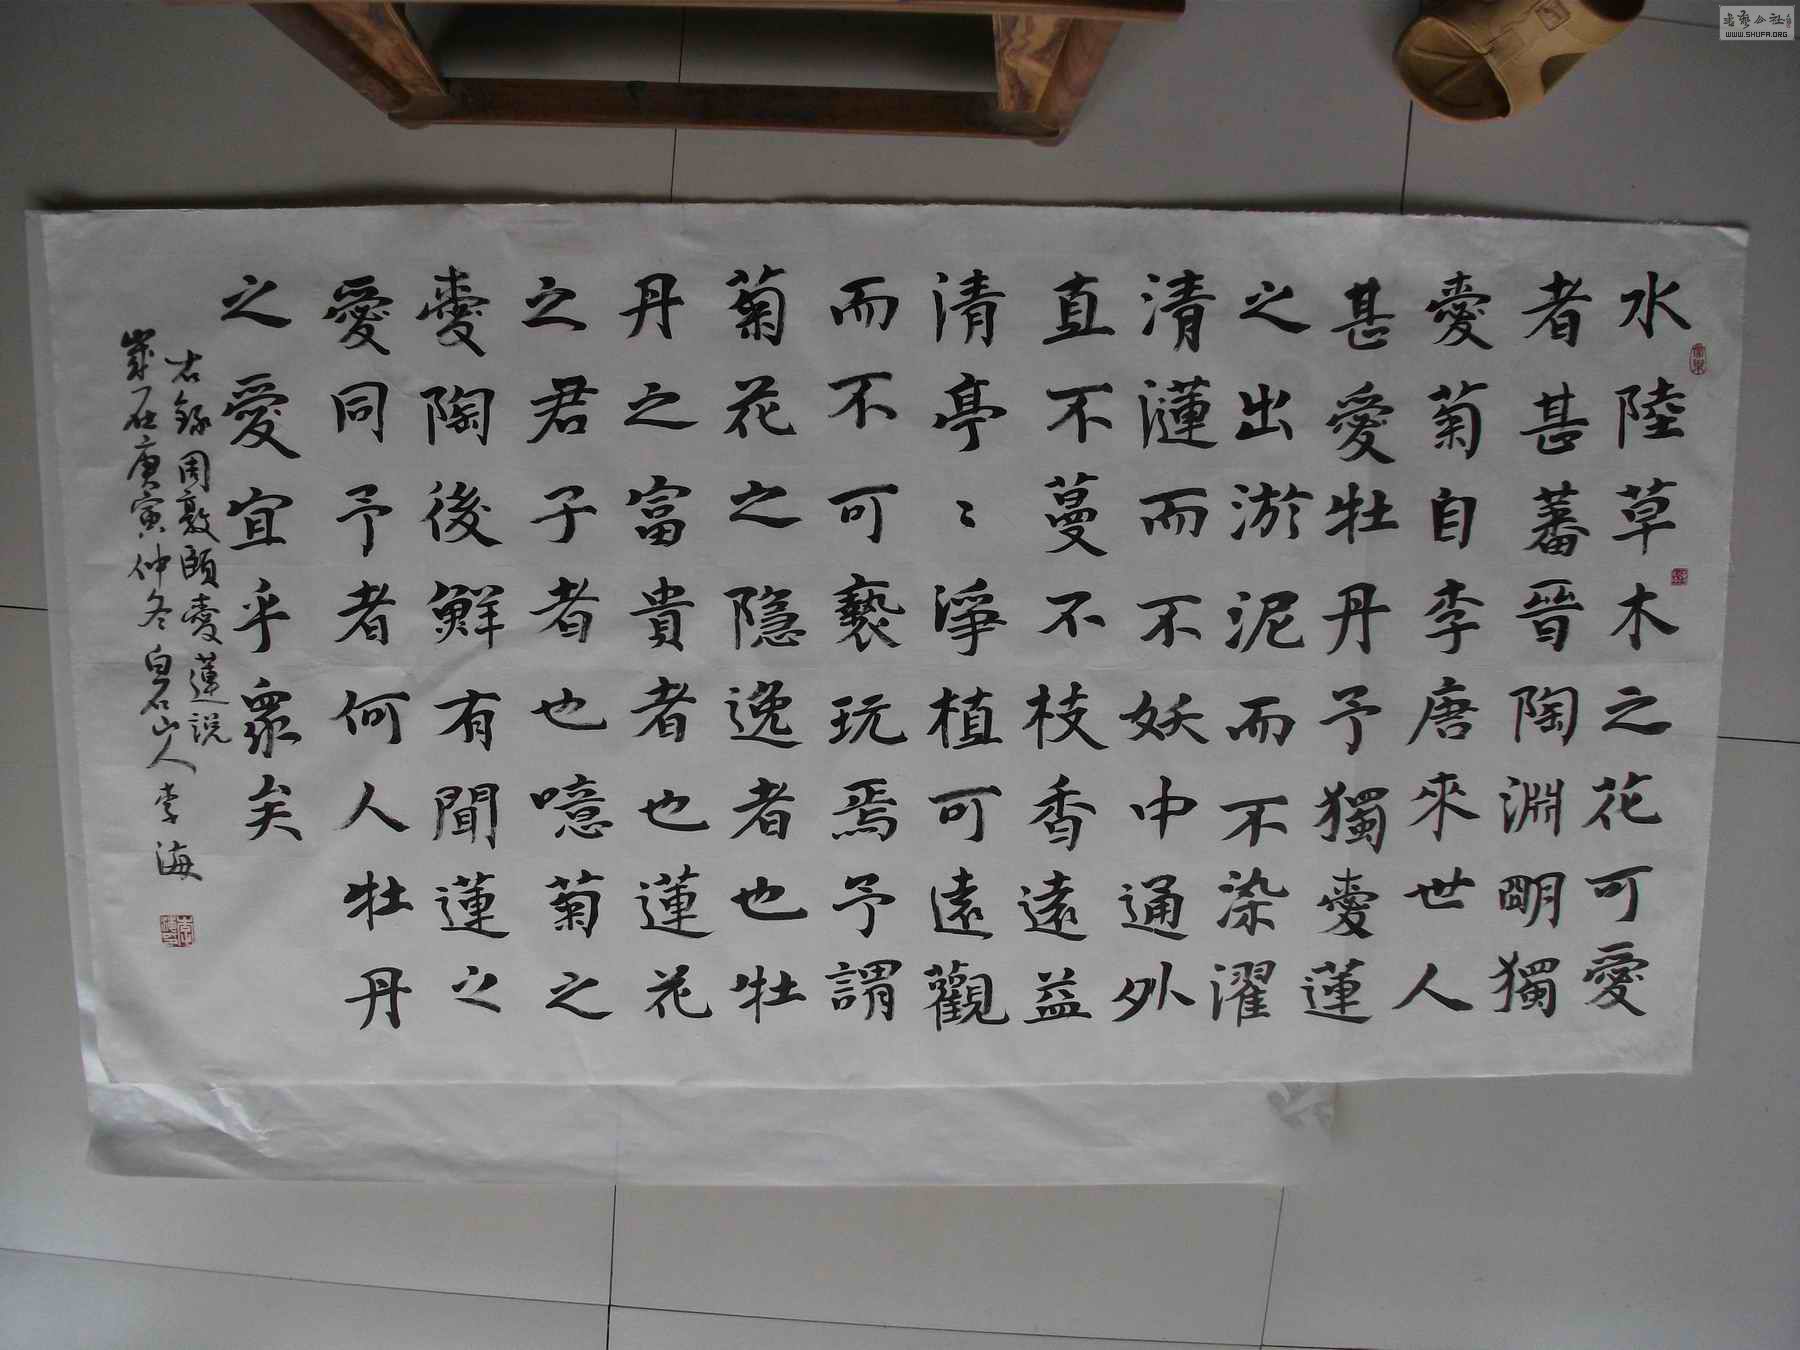 水陸草木之花可愛
者甚蕃晉陶淵明獨
愛菊自李唐來世人
甚愛牡丹予獨愛蓮
之出淤泥而不染濯
清漣而不妖中通外
直不蔓不枝香遠益
清亭〻淨植可遠觀
而不可褻玩焉予謂
菊花之隐逸者也牡
丹之富貴者也蓮花
之君子者也噫菊之
愛陶後鮮有聞蓮之
愛同予者何人牡丹
之愛宜乎眾矣
右錄周敦頤愛蓮説
歲在庚寅仲冬白石山人李海
书艺公社
WWW.SHUFA.ORG